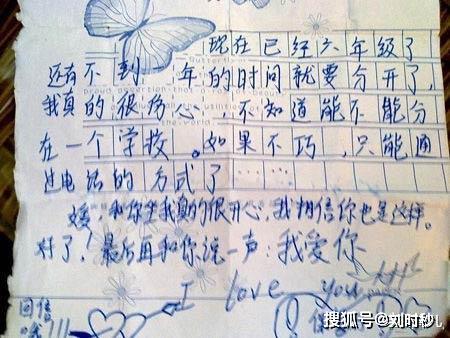 现在已经六年级了
还有不到一年的时间就要分开了，
我真的很伤心，不知道能不能分
在一个学校。如果不巧，只能通
过电话的方式了……
媛，和你坐我真的很开心，我相信你也是这样。
好了！最后再和你说一声：我爱你
I love you
回信
哦!!!
搜狐号@刘时秒